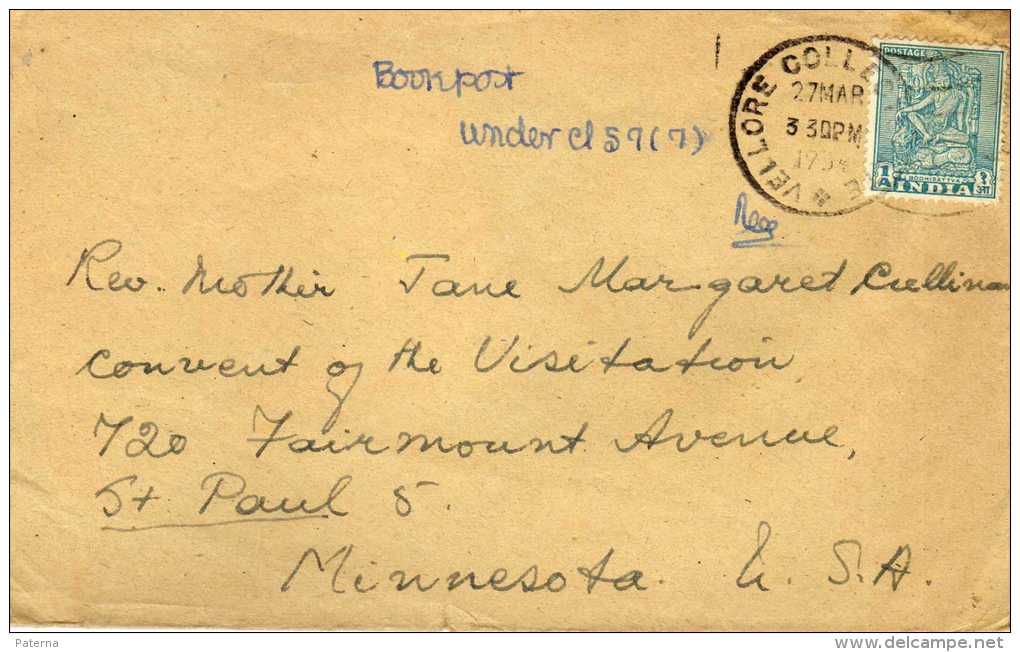 Bookpost
under cl 57 (7)
VELLORE COLLE
27 MAR
3 30PM
POSTAGE
1 A.
BODHISATTVA
१ आ.
INDIA
Rev. Mother Jane Margaret Cullinan
Convent of the Visitation,
720 Fairmount Avenue,
St Paul 5.
Minnesota U.S.A.
Paterna
www.delcampe.net